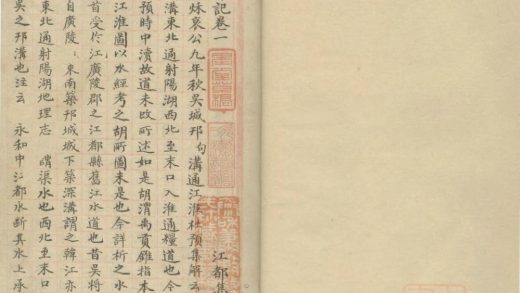 記卷一
江都
哀公九年秋吳城邗句溝通江淮杜預集解云
溝東北通射陽湖西北至末口入淮通糧道也今
預時中瀆故道未改所述如是胡渭禹貢錐指本
江淮圖以水經考之胡所圖未是也今詳析之水
首受於江廣陵郡之江都縣舊江水道也昔吳將
自廣陵東南築邗城城下築深溝謂之韓江亦
東北通射陽湖地理志 謂渠水也西北至末口
吳之邗溝也注云 永和中江都水斷其水上承